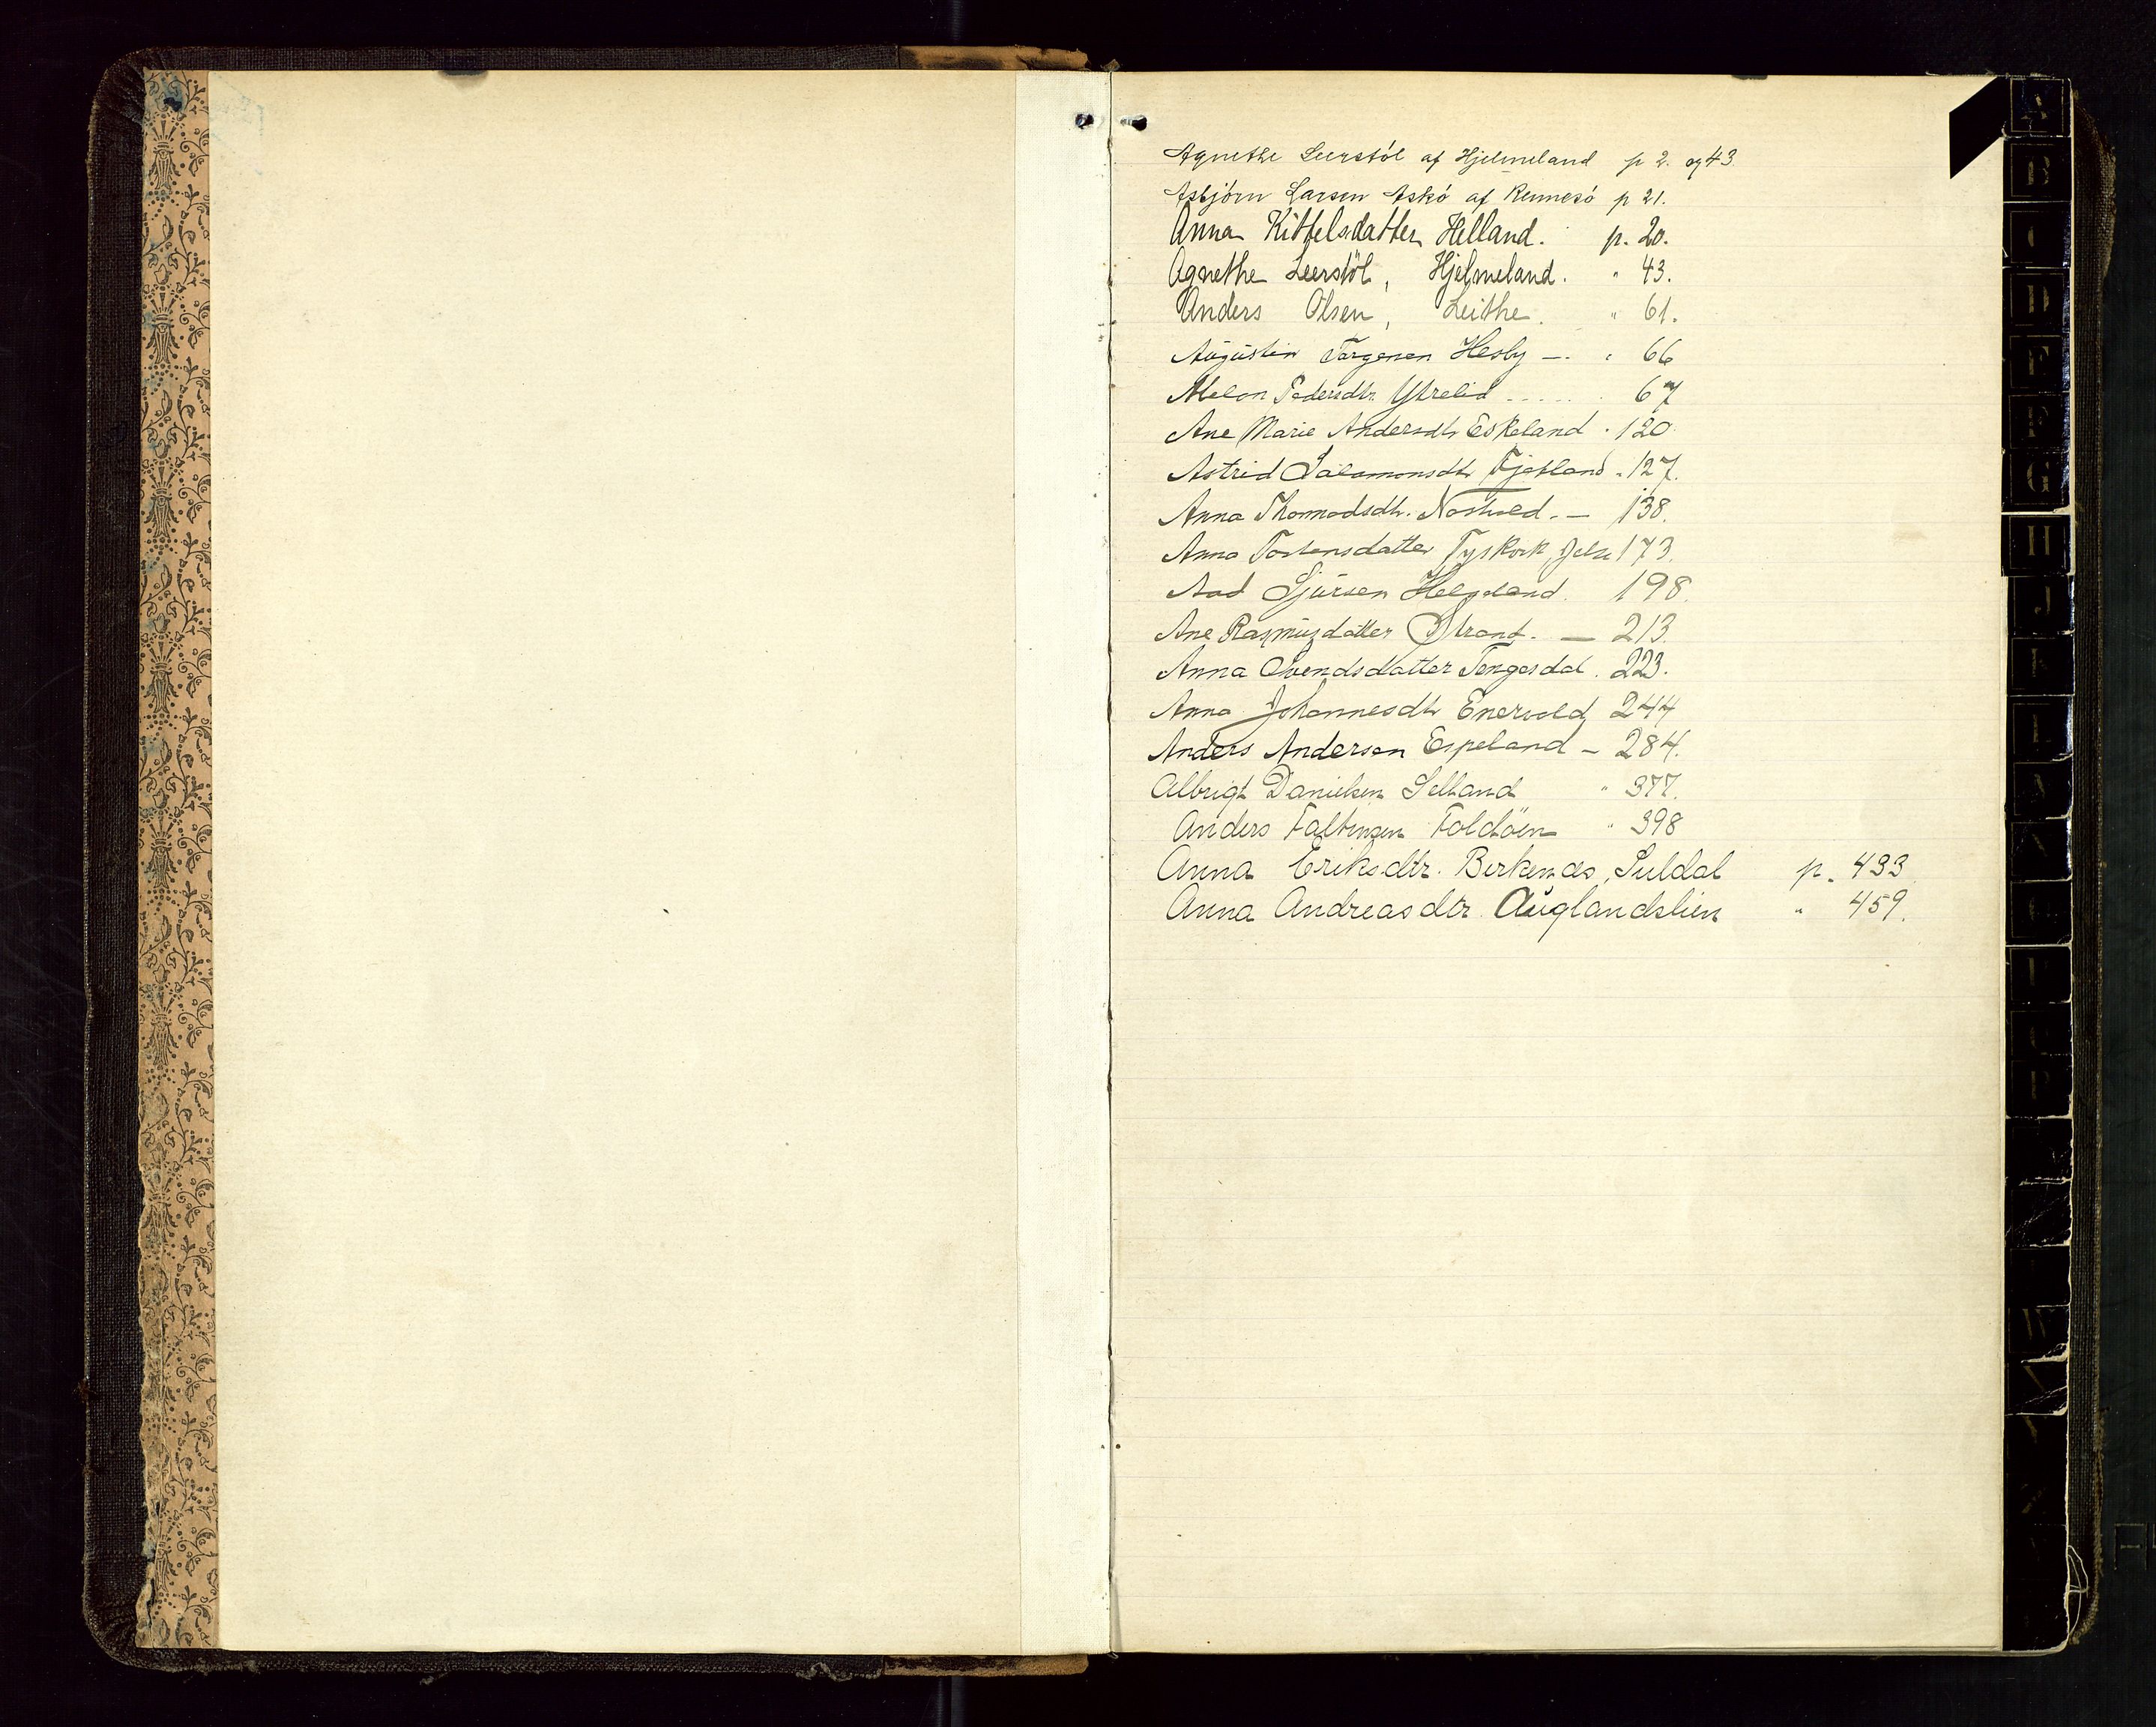 Agnethe Leerstøl af Hjelmeland p 2. og 43
Asbjörn Larsen Askö af Rennesö p 21.
Anna Kittelsdatter Helland. p. 20.
Agnethe Leerstöl, Hjelmeland. " 43.
Anders Olsen, Leithe. " 61.
Augustin Torgersen Hesby —. " 66
Pedersdtr. Ytrelid ..... 67
Ane Marie Andersdtr Eskeland . 120
Astrid Salamonsdtr Fjetland . 127.
Anna Thormodsdtr. — 138.
Anna Torstensdatter Jelse 173.
Aad Sjursen Helgeland. 198.
Ane Rasmusdatter Strant. — 213.
Anna Svendsdatter Tengesdal. 223.
Anna Johannesdtr Enervold 244
Anders Andersen Espeland — 284.
Albrigt Danielsen Selland " 377.
Anders Faltinsen Foldöen " 398
Anna Eriksdtr. Birkenæs, Suldal p. 433
Anna Andreasdtr Auglandslien " 459.
A
B
D
F
G
H
J
L
W